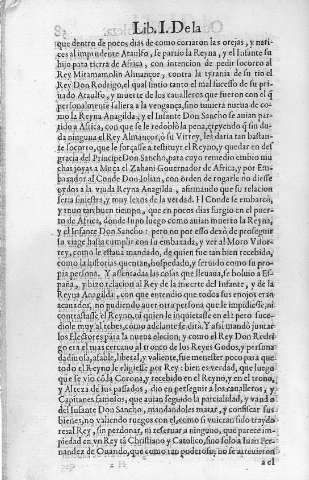 Lib. I. De la
que dentro de pocos dias de como cortaron las orejas, y narices
al imprudente Ataulfo, se partio la Reyna, y el Infante su
hijo para tierra de Africa, con intencion de pedir socorro al
Rey Miramamolin Almançor, contra la tyrania de su tio el
Rey Don Rodrigo, el qual sintio tanto el mal sucesso de su privado
Ataulfo, y muerte de los cavalleros que fueron con el q̃
personalmente saliera a la vengança, sino tuviera nueva de como
la Reyna Anagilda, y el Infante Don Sancho se avian partido
a Africa, con que se le redoblò la pena, creyendo q̃ sin duda
ninguna el Rey Almançor, ò su Virrey, les daria tan bastante
socorro, que le forçasse a restituyr el Reyno, y quedar en desgracia
del Principe Don Sancho, para cuyo remedio embio muchas
joyas a Muça el Zahani Governador de Africa, y por Embaxador
al Conde Don Iulian, con orden de rogarle no diesse
oydos a la viuda Reyna Anagilda, afirmando que su relacion
seria siniestra, y muy lexos de la verdad. El Conde se embarcò,
y tuvo tan buen tiempo, que en pocos dias surgio en el puerto
de Africa, donde supo luego como avian muerto la Reyna,
y el Infante Don Sancho: pero no por esso dexò de proseguir
su viage hasta cumplir con su embaxada, y ver al Moro
como le estava mandado, de quien fue tan bien recebido,
como la historia cuenta, hospedado, y servido como su propia
persona. Y assentadas las cosas que llevava, se bolvio a España,
y hizo relacion al Rey de la muerte del Infante, y de la
Reyna Anagilda: con que entiendo que todos sus enojos eran
acabados, no pudiendo aver otra persona que le impidiesse, ni
contrastasse el Reyno, ni quien le inquietasse en el: pero sucediole
muy al rebes, como adelante se dirà. Y assi mandò juntar
los Electores para la nueva eleccion, y como el Rey Don Rodrigo
era el mas cercano al tronco de los Reyes Godos, y persona
afable, liberal, y valiente, fue menester poco para que
todo el Reyno le eligiesse por Rey: bien es verdad, que luego
que se vio cõ la Corona, y recebido en el Reyno, y en el trono,
y Alteza de sus passados, dio en perseguir a los cavalleros, y
Capitanes famosos, que avian seguido la parcialidad, y vando
del Infante Don Sancho, mandandoles matar, y confiscar sus
bienes, no valiendo ruegos con el, como si huvieran sido traydores
al Rey, sin perdonar, ni reservar a ninguno, que parece impiedad
en vn Rey tã Christiano y Catolico, sino solo a Iuan Fernandez
de Ovando, que como tan poderoso, no se atrevieron
a el